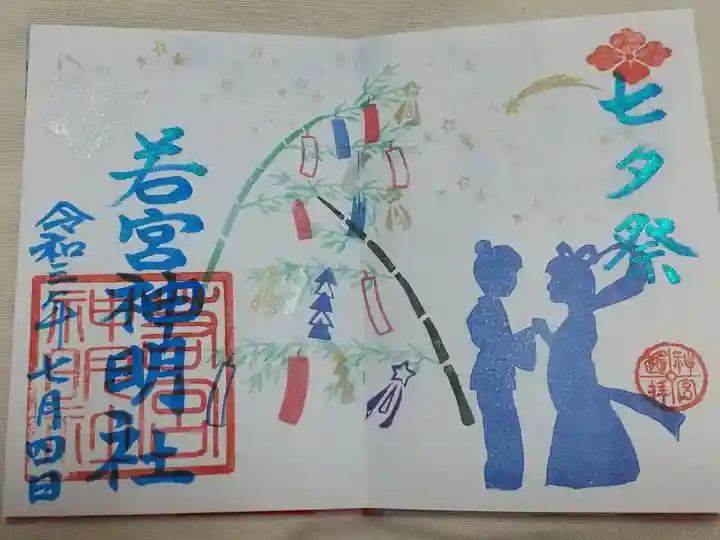 七夕祭
神宮
遥拝
若宮神明社
令和三年七月四日